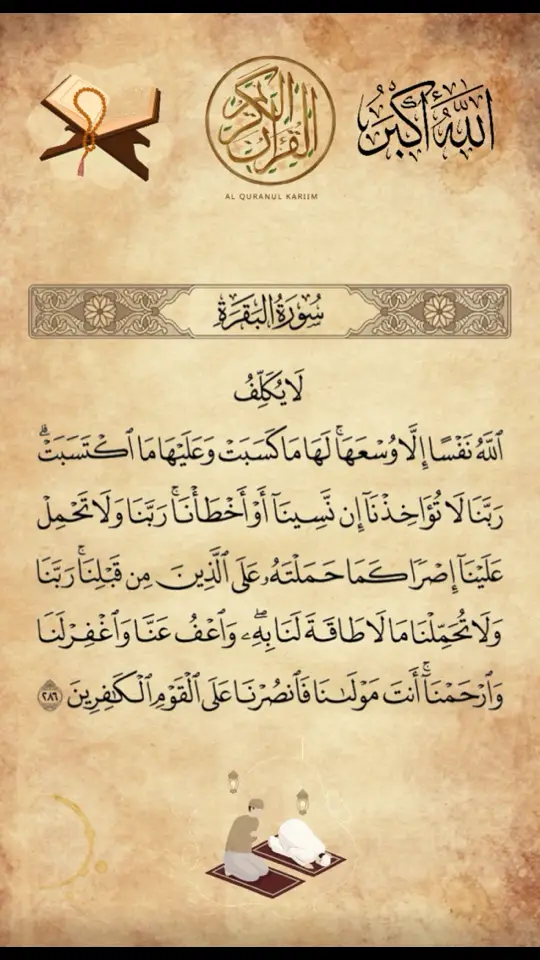 القرآن الكريم
AL QURANUL KARIIM
اللَّهُ أَكْبَرُ
سُورَةُ البَقَرَةِ
لَا يُكَلِّفُ
ٱللَّهُ نَفْسًا إِلَّا وُسْعَهَا ۚ لَهَا مَا كَسَبَتْ وَعَلَيْهَا مَا ٱكْتَسَبَتْ ۗ
رَبَّنَا لَا تُؤَاخِذْنَآ إِن نَّسِينَآ أَوْ أَخْطَأْنَا ۚ رَبَّنَا وَلَا تَحْمِلْ
عَلَيْنَآ إِصْرًا كَمَا حَمَلْتَهُۥ عَلَى ٱلَّذِينَ مِن قَبْلِنَا ۚ رَبَّنَا
وَلَا تُحَمِّلْنَا مَا لَا طَاقَةَ لَنَا بِهِۦ ۖ وَٱعْفُ عَنَّا وَٱغْفِرْ لَنَا
وَٱرْحَمْنَآ ۚ أَنتَ مَوْلَىٰنَا فَٱنصُرْنَا عَلَى ٱلْقَوْمِ ٱلْكَٰفِرِينَ ٢٨٦